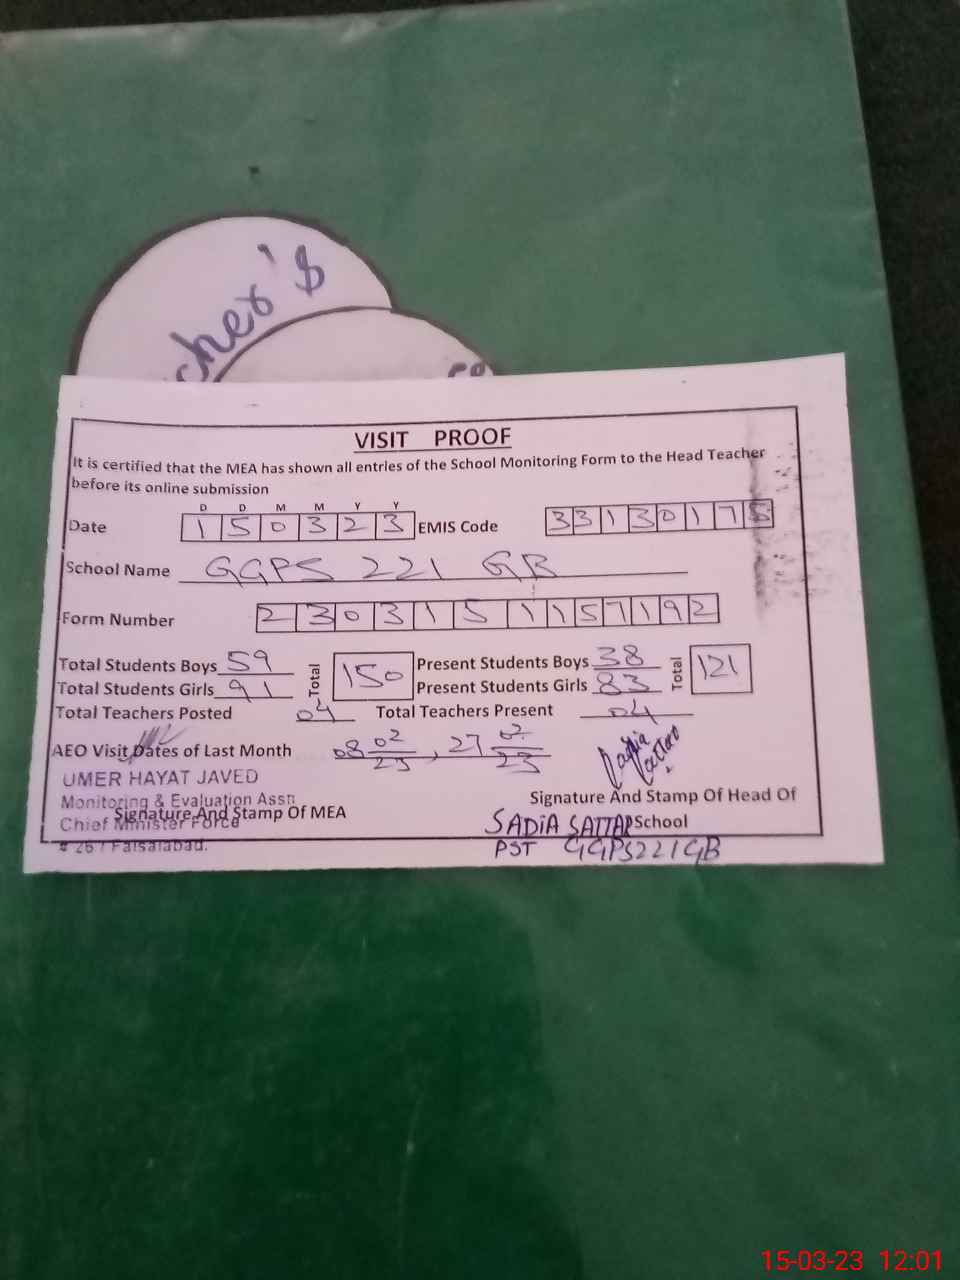 cher's
VISIT PROOF
It is certified that the MEA has shown all entries of the School Monitoring Form to the Head Teacher
before its online submission
D D M M Y Y
Date 1 5 0 3 2 3 EMIS Code 3 3 1 3 0 1 7 5
School Name GGPS 221 GB
Form Number 2 3 0 3 1 5 1 1 5 7 1 9 2
Total Students Boys 59 Total 150 Present Students Boys 38 Total 121
Total Students Girls 91 Present Students Girls 83
Total Teachers Posted 04 Total Teachers Present 04
AEO Visit Dates of Last Month 08 02/23, 27 02/23
Sadia Sattar
UMER HAYAT JAVED
Monitoring & Evaluation Asstt
Signature And Stamp Of MEA
Chief Minister Force
# 267 Faisalabad.
Signature And Stamp Of Head Of
School
SADiA SATTAR
PST GGPS221GB
15-03-23 12:01